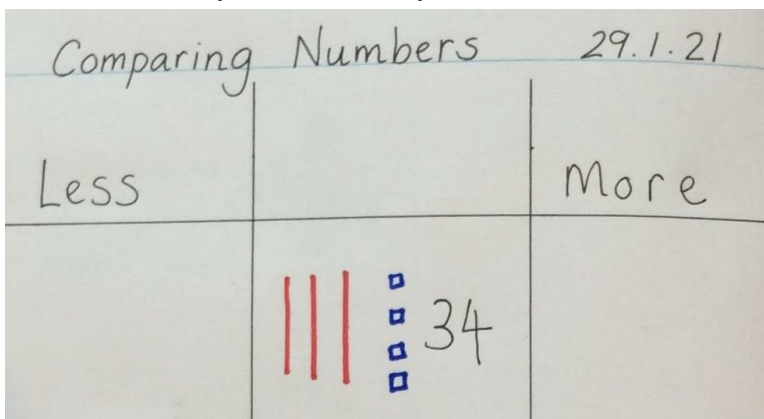 Comparing Numbers 29.1.21
Less More
34